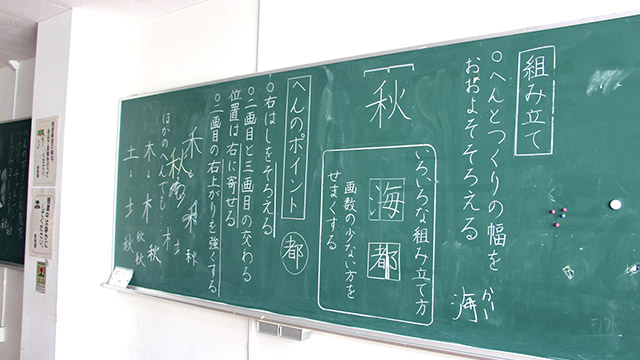 組み立て
○へんとつくりの幅を
おおよそそろえる
かい
海
秋
いろいろな組み立て方
海
都
画数の少ない方を
せまくする
へんのポイント
都
○右はしをそろえる
○二画目と三画目の交わる
位置は右に寄せる
○二画目の右上がりを強くする
禾→禾秋
秋
ほかのへんでも
木→木秋
土→土秋